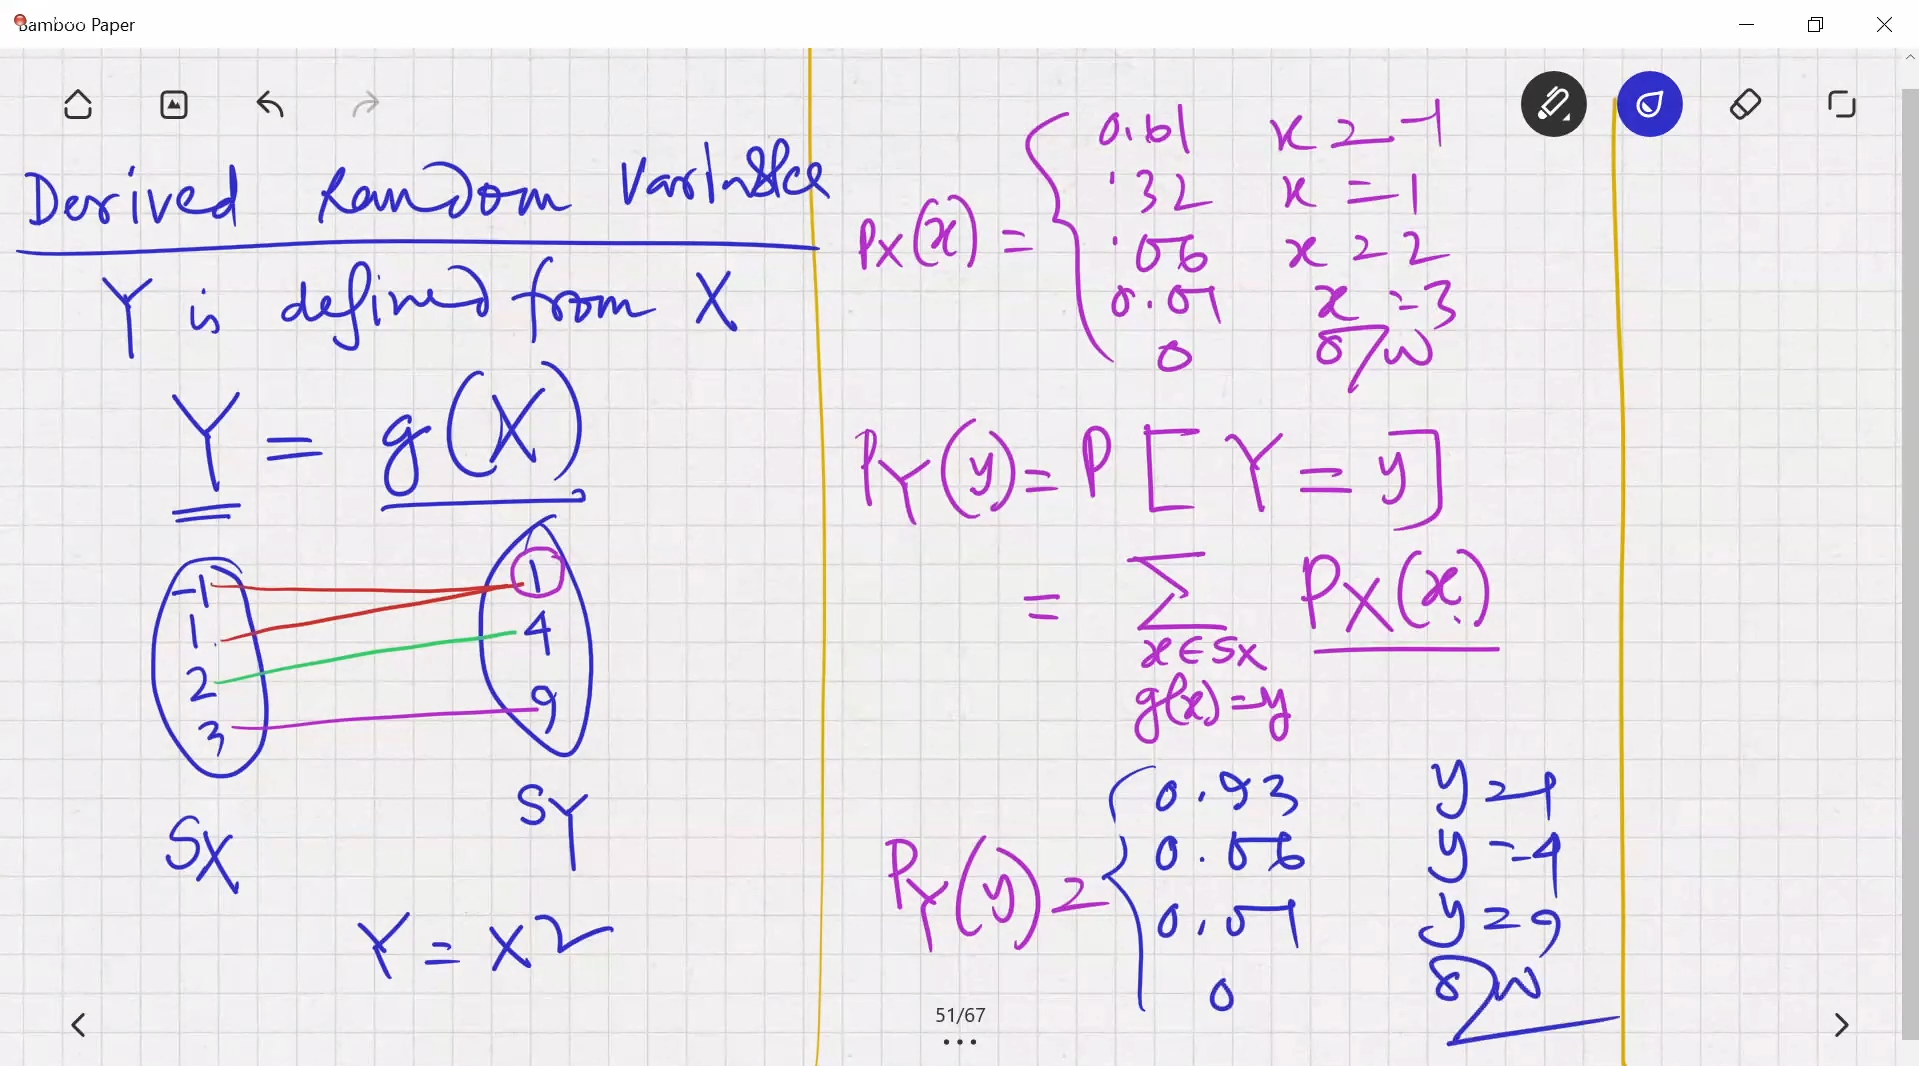 Bamboo Paper
Derived Random Variable
Y is defined from X
Y = g(X)
-1
1
2
3
1
4
9
SX
SY
Y = X2
PX(x) =
0.61 x = -1
.32 x = 1
.06 x = 2
0.01 x = 3
0 o/w
PY(y) = P [ Y = y ]
= Σ PX(x)
x ∈ SX
g(x) = y
PY(y) =
0.93 y = 1
0.06 y = 4
0.01 y = 9
0 o/w
51/67